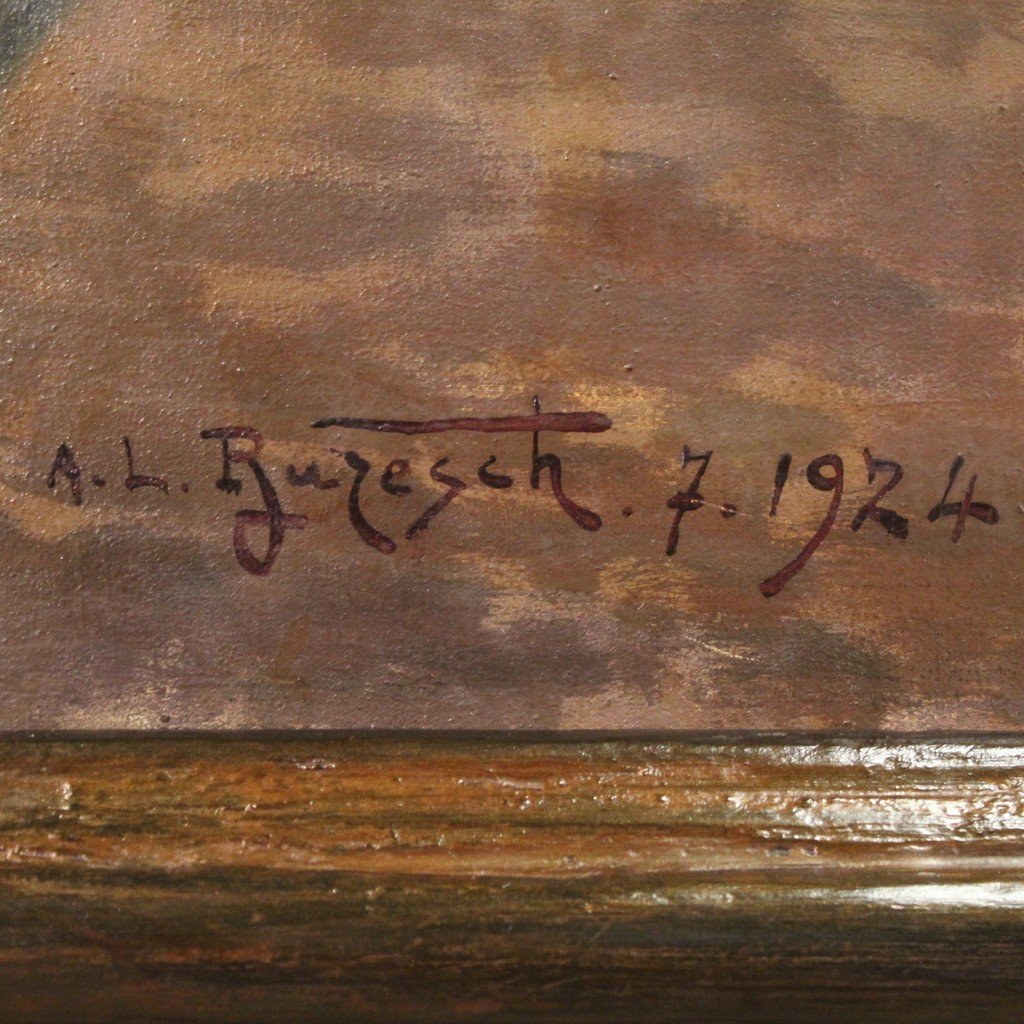 A. L. Buresch. 7. 1924